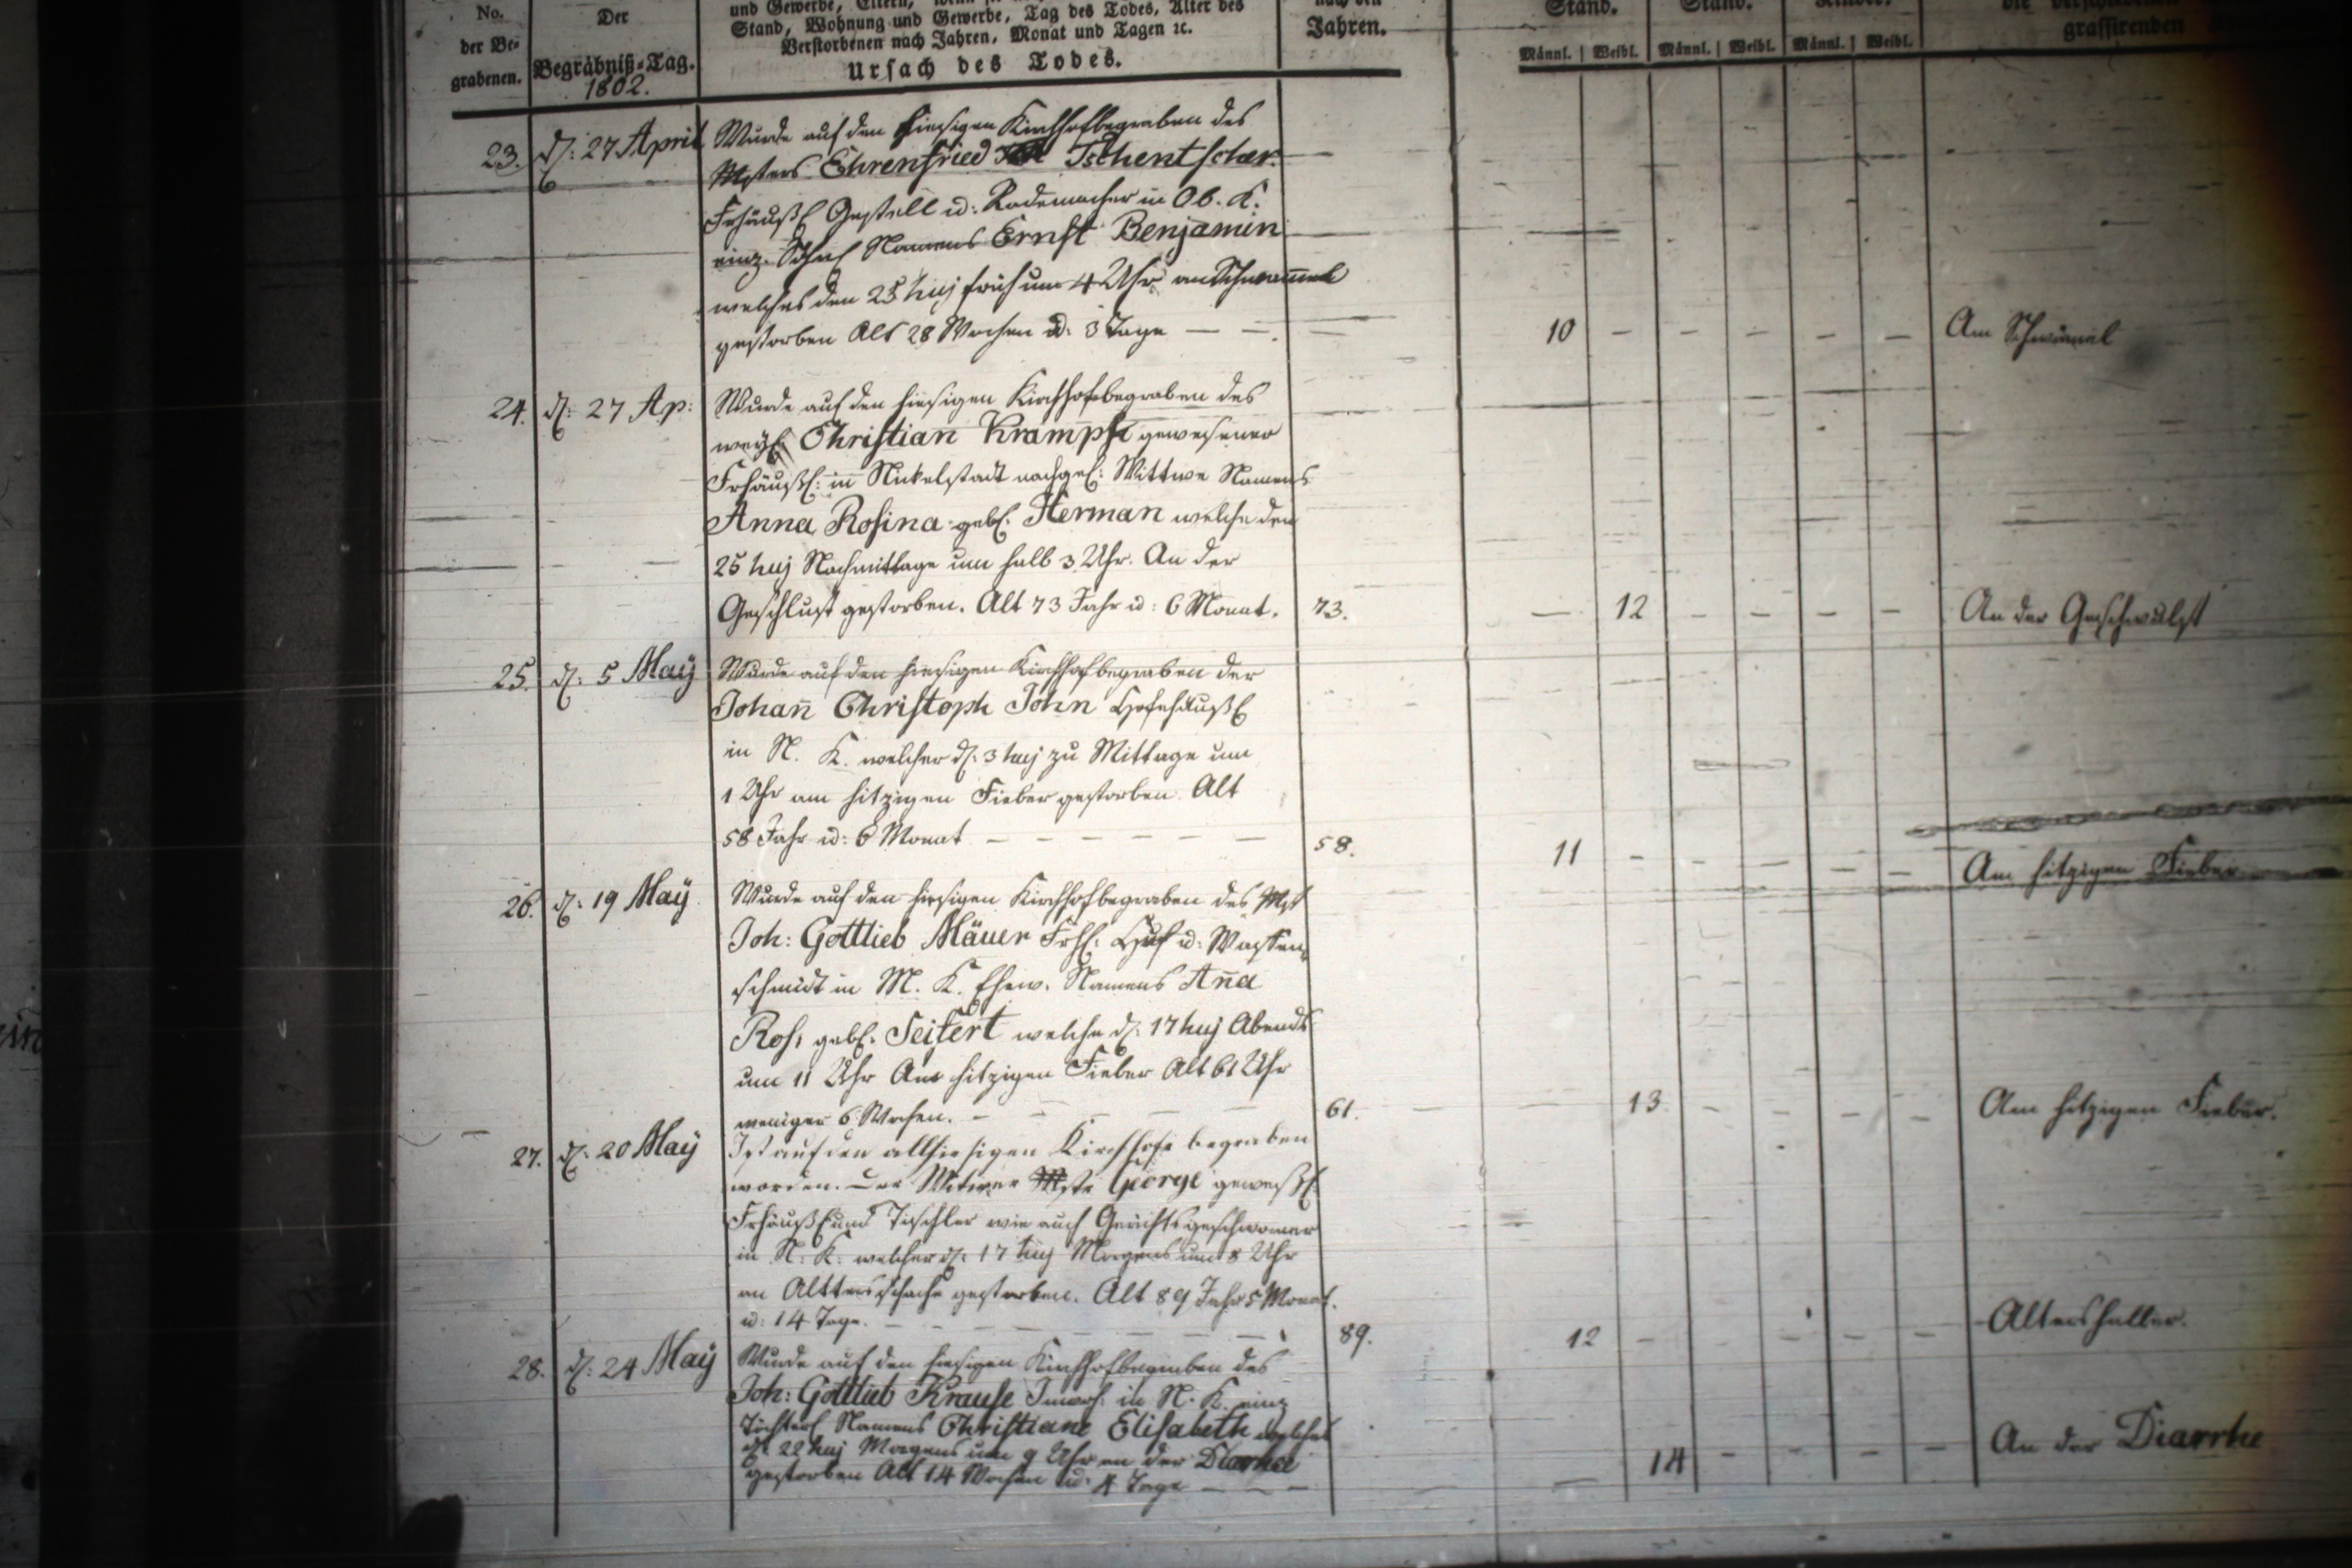 No.
der Be-
grabenen.
Der
Begräbniß-Tag.
1802.
und Gewerbe, Eltern, wenn
Stand, Wohnung und Gewerbe, Tag des Todes, Alter des
Verstorbenen nach Jahren, Monat und Tagen ꝛc.
Ursach des Todes.
nach den
Jahren.
Stand.
Stand.
Kinder.
Männl. Weibl. Männl. Weibl. Männl. Weibl.
die verschiedenen
grassirenden
23. d: 27 April Wurde auf den hiesigen Kirchhof begraben des
Msters Ehrenfried Tschentscher
Frhäußl Gestell u: Rademacher in Ob. K.
einz. Söhnl Namens Ernst Benjamin
welches den 25 huj früh um 4 Uhr an Schwaemel
gestorben Alt 28 Wochen u: 3 Tage — — 10 — — — — — Am Schwämel
24. d: 27 Ap: Wurde auf den hiesigen Kirchhof begraben des
weyl Christian Krampf gewesener
Frhäußl: in Nickelstadt nachgel: Wittwe Namens
Anna Rosina geb. Herman welche den
25 huj Nachmittage um halb 3 Uhr. An der
Geschlust gestorben. Alt 73 Jahr u: 6 Monat. 73. — 12 — — — — An der Geschwulst
25. d: 5 Maÿ Wurde auf den hiesigen Kirchhof begraben der
Johañ Christoph John Hofehäußl
in N. K. welcher d: 3 huj zu Mittage um
1 Uhr am hitzigen Fieber gestorben Alt
58 Jahr u: 6 Monat — — — — — — 58. 11 — — — — — Am hitzigen Fieber
26. d: 19 Maÿ Wurde auf den hiesigen Kirchhof begraben des Mst
Joh: Gottlieb Mäuer Frhl: Huf u: Waffen
schmidt in M. K. Ehew. Namens Aña
Ros: geb. Seifert welche d: 17 huj Abends
um 11 Uhr Am hitzigen Fieber Alt 61 Uhr
weniger 6 Wochen. — — — — — 61. — — 13 — — — — Am hitzigen Fieber.
27. d: 20 Maÿ Ist auf den allhiesigen Kirchhofe begraben
worden. Der Wittwer Mste George
Frhäußl und Tischler wie auch Gerichtsgeschworner
in N: K: welcher d: 17 huj Morgens um 8 Uhr
an gestorben. Alt 89 Jahr 5 Monat.
u: 14 Tage. — — — — — — 89. 12 — — — — Altershalber.
28. d: 24 Maÿ Wurde auf den hiesigen Kirchhof begraben des
Joh: Gottlieb Krause Inwoh: in N. K. einz
Töchterl Namens Christiane Elisabeth welches
d. 22 huj Morgens um 9 Uhr an der Diarrhe
gestorben Alt 14 Wochen u: 4 Tage — — — — 14 — — — — An der Diarrhe